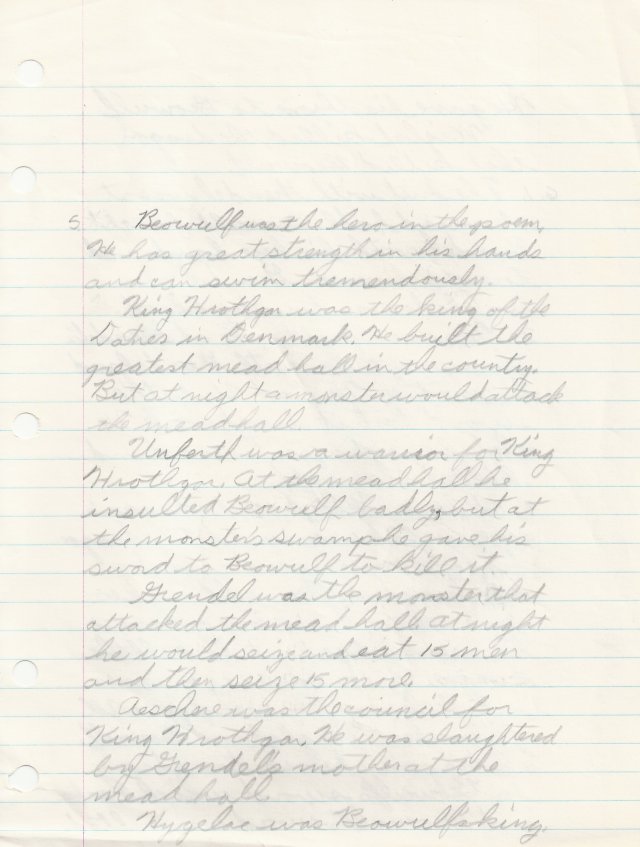 5 Beowulf was the hero in the poem.
He has great strength in his hands
and can swim tremendously.
King Hrothgar was the king of the
Danes in Denmark. He built the
greatest mead hall in the country.
But at night a monster would attack
the mead hall.
Unferth was a warrior for King
Hrothgar. At the mead hall he
insulted Beowulf badly, but at
the monster's swamp he gave his
sword to Beowulf to kill it.
Grendel was the monster that
attacked the mead hall. At night
he would seize and eat 15 men
and then seize 15 more.
Aeschere was the council for
King Hrothgar. He was slaughtered
by Grendel's mother at the
mead hall.
Hygelac was Beowulf's king.